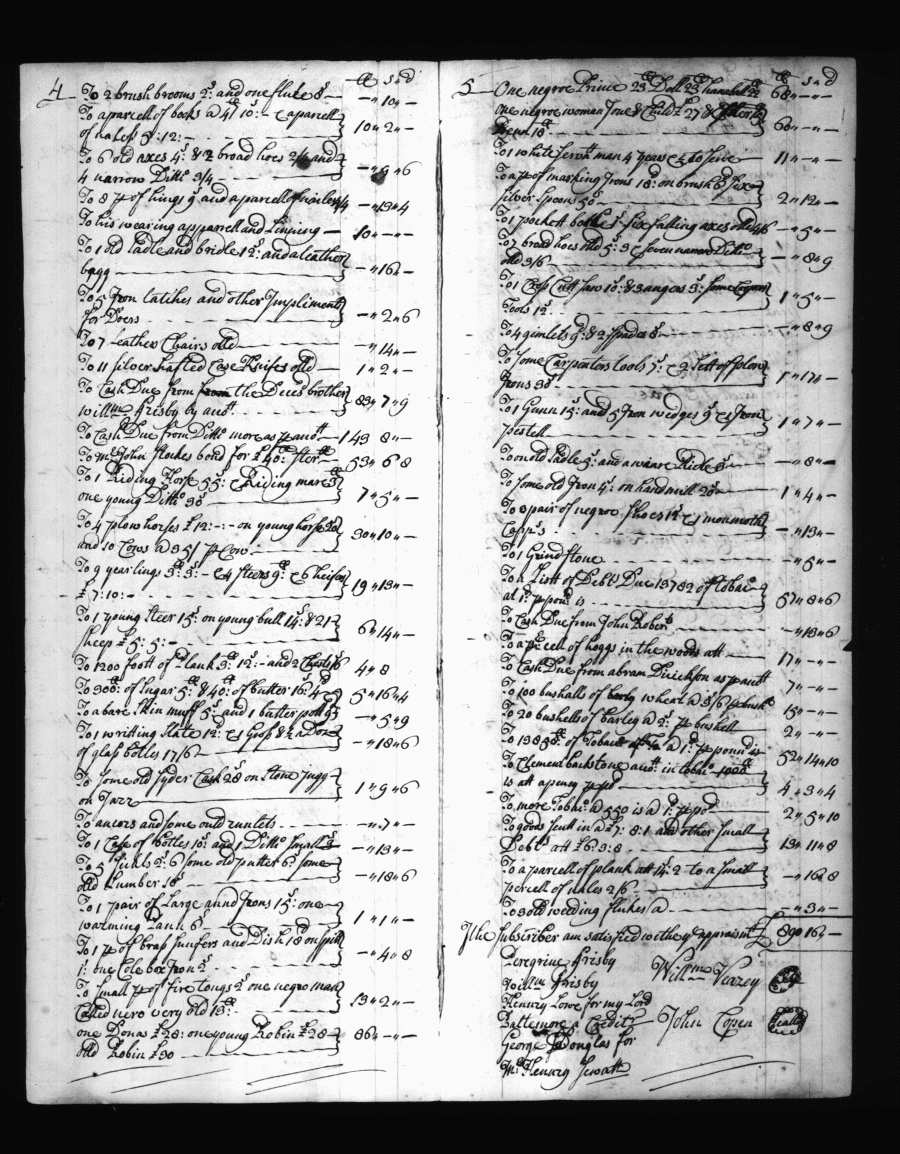 4 £ s d
To 2 brush brooms 2s: and one fluke 8s — — " 10 " —
To a parcell of books @ 4£ 10s: — & a parcell
of nales 5£: 12: — } 10 " 2 " —
To 6 old axes 4s: & 2 broad hoes 2/6 and
4 narrow Ditto 3/4 } — " 9 " 6
To 8 pr of hinges 9s and a parcell of nailes 4/4 — " 13 " 4
To his wearing apparrell and Linning — 10 " — " —
To 1 old Sadle and bridle 12s: and a leather
bagg } — " 16 " —
To 5 Iron latches and other Impliments
for Doers } — " 2 " 6
To 7 Leather Chairs olld — " 14 " —
To 11 Silver hafted Case Knifes olld — 1 " 2 " —
To Cash Due from the Deces brother
willm Frisby by acctt } 83 " 7 " 9
To Cash Due from Ditto more as p acctt — 143 8 " —
To Mr John Stokes bond for £40: sterg — 53 " 6 8
To 1 Riding Horse 55s: & Riding mare 3£
one young Ditto 30s } 7 " 5 " —
To 4 plow horses £12: — : — on young horse 20s
and 10 Cows @ 35/ p Cow } 30 " 10 " —
To 9 yearlings 3£: 3s: — & 4 steers 9£: & 6 heifers
£7: 10: — } 19 " 13 " —
To 1 young steer 15s: on young bull 14s: & 21
sheep £5: 5: — } 6 " 14 " —
To 1200 foott of Plank 3£: 12: — and 2 Chests 16 4 " 8
To 300lb: of Sugar 5£: & 40lb: of butter 16s: 4d 5 " 16 " 4
To a bare Skin muff 5s and 1 butter pott 9d — " 5 " 9
To 1 writting Slate 12d: & 1 Gross & ½ a Doz
of glass botles 17/6 } — " 18 " 6
To some old Syder Cask 28s on Stone Jugg
on Jarr } 1 " 9 " 6
To ancors and some ould runlets — " 7 " —
To 1 Case of botles 10s: and 1 Ditto Small 3s — " 13 " —
To 5 Sickls 2s: 6 some old putter 6s: some
old Lumber 10s } — " 18 " 6
To 1 pair of Large annd Irons 15s: one
warming Pann 6s } 1 " 1 " —
To 1 pr of brass Snufers and Dish 18d on spitt
1s: one Cole box Iron 2s } — " 4 " 8
To Small pr of fire tongs 2s one negro man
Called nero very old 13£: — } 13 " 2 " —
one Donas £28: one young Robin £28
old Robin £30 } 86 " — " —
5 £ s d
One negroe Prince 23£ Doll 23£ hannball 22£ 68 " — " —
one negroe woman Jone & Child £27 &
10£ } 60 " — " —
To 1 white Servtt man 4 years & ½ to Serve — 11 " — " —
To a pr of marking Irons 18d: on brush 6d Six
Silver Spoons 50s } 2 " 12 " —
To 1 pockett bottle 1s six falling axes olld 4/6 — " 5 " —
To 7 broad hoes old 5s: 3 & Seven narrow Ditto
old 3/6 } — " 8 " 9
To 1 Cross Cutt Saw 10s: & 3 angers 3s: some Coopars
Tools 12s } 1 " 5 " —
To 4 gimlets 9d: & 2 spades 8s — " 8 " 9
To some Carpenters tools 7s: & 2 Sett of plow
Irons 30s } 1 " 17 " —
To 1 Gunn 15s: and 5 Iron wedges 9s & Iron
pestell } 1 " 7 " —
To on old Sadle 5s: and a Hide 3s — " 8 " —
To some old Iron 4s: on handmill 20s 1 " 4 " —
To 3 pair of negroe Shoes 12s & 1 monmoth
Capps } — " 13 " —
To 1 Grind stone — " 5 " —
To a Listt of Debts Due 13782 of tobac
at 1d: p pound is } 57 " 8 " 6
To Cash Due from John Roberts — " 18 " 6
To a pcell of hoggs in the woods att 17 " — " —
To Cash Due from abram Dirickson as p acctt 7 " — " —
To 100 bushalls of wheat @ 3/6 p bush 15 " — " —
To 20 bushells of barley @ 2s: p bushell 2 " — " —
To 138 of Tobaco @ 1d: p pound is 52 " 14 " 10
To Clement backstone acctt in tobac 1008lb
is att a peny p pd } 4 " 3 " 4
To more Tobac @ 550 is @ 1d: p pd 2 " 5 " 10
To goods sentt in @ £7: 8: 1 and other Small
Debts att £6: 3: 8 } 13 " 11 " 8
To a parcell of plank att 14s: 2 to a Small
percell of nales 2/6 } — " 16 " 8
To 3 old weeding flukes @ — " 3 " —
I the Subscriber am satisfied wth the appraismtt £ 890 16 " —
Peregrine Frisby Willm Veazey
Willm Frisby
Henry Lowe for my Lord
Baltemore a Creditr John Copen Seale
George Douglas for
Mr Henry Jewatt